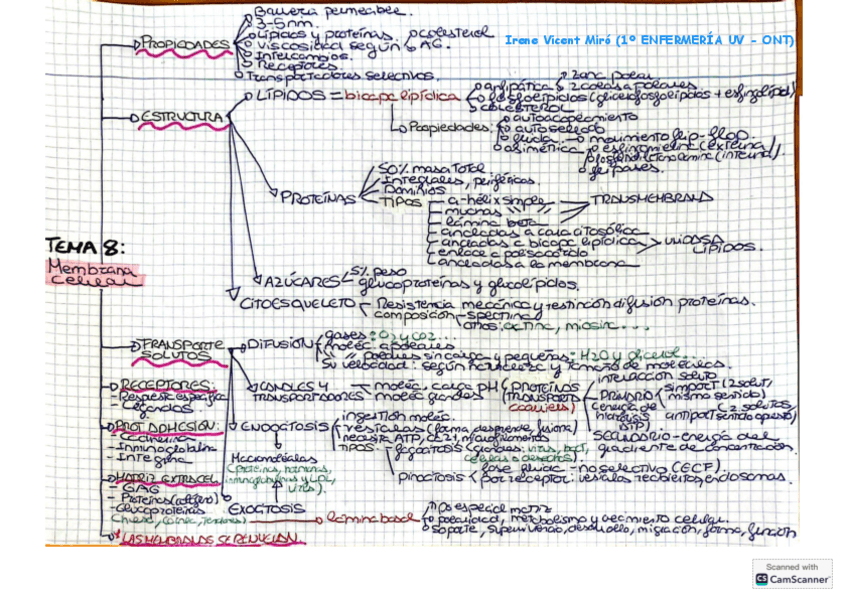 Barrera permeable.
3-5nm.
PROPIEDADES
Lípidos y proteínas. colesterol
Irene Vicent Miró (1º ENFERMERÍA UV - ONT)
viscosidad según AG.
Intercambios.
Receptores
Transportadores selectivos.
ESTRUCTURA
LÍPIDOS = bicapa lipídica
anfipática
2 colas apolares
fosfolípidos (glicerofosfolípidos + esfingolípid)
COLESTEROL
Propiedades:
autoacoplamiento
autosellado
fluida movimiento flip-flop.
asimétrica esfingomielina (externa)
PROTEÍNAS
50% masa total.
Integrales, periféricas.
Dominios
TIPOS
α-hélix simple
TRANSMEMBRANA
muchas
lámina beta
ancladas a cara citosólica
ancladas a bicapa lipídica
UNIDAS A LÍPIDOS.
ancladas a la membrana
TEMA 8:
Membrana
celular
AZÚCARES
5% peso
glucoproteínas y glucolípidos.
CITOESQUELETO
Resistencia mecánica y restricción difusión proteínas.
composición
otros: actina, miosina...
TRANSPORTE
SOLUTOS
DIFUSIÓN
gases: O2 y CO2...
moléc. apolares
polares sin carga y pequeñas: H2O y glicerol...
Su velocidad: según naturaleza y tamaño de moléculas.
RECEPTORES:
- Respuesta específica
- Ligandos
CANALES Y
TRANSPORTADORES
moléc. carga
moléc. grandes
PROTEÍNAS
TRANSPORTE
(carriers)
interacción soluto
PRIMARIO
(energía de
hidrólisis
ATP)
simport (2 solut,
mismo sentido)
antiport
(2 solutos,
sentido opuesto)
SECUNDARIO - energía del
gradiente de concentración.
PROT ADHESIÓN:
- Cadherina
- Inmunoglobulina
- Integrina
ENDOCITOSIS
ingestión moléc.
vesículas (forma, desprende, fusiona)
necesita ATP, Ca2+, microfilamentos
TIPOS
fagocitosis (grandes: virus, bact,
células o desechos).
pinocitosis
fase fluida - no selectivo (ECF).
por receptor: vesículas recubiertas, endosomas.
Macromoléculas
(proteínas, hormonas,
inmunoglobulinas y LDL,
virus).
MATRIZ EXTRACEL
- GAG
- Proteínas
- Glucoproteínas
EXOCITOSIS
lámina basal
tipo especial matriz
polaridad, metabolismo y crecimiento celular.
soporte, supervivencia, desarrollo, migración, forma, función
LAS MEMBRANAS SE RENUEVAN.
Scanned with
CS CamScanner